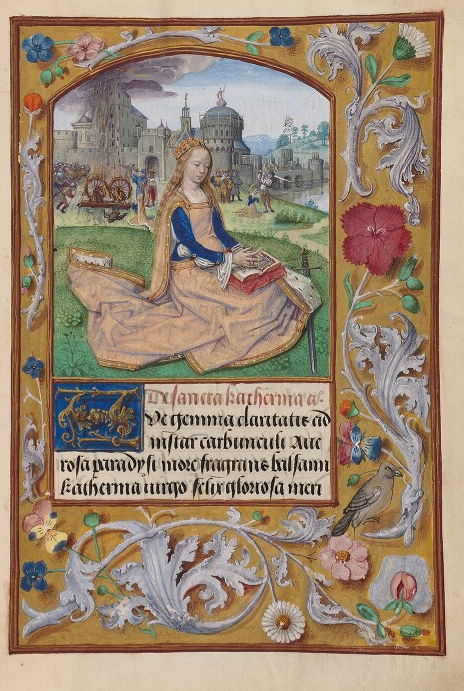 De sancta katherina a͞.
Ve gemma claritatis ad
instar carbunculi Aue
rosa paradysi more fragrans balsami
katherina uirgo felix gloriosa meri